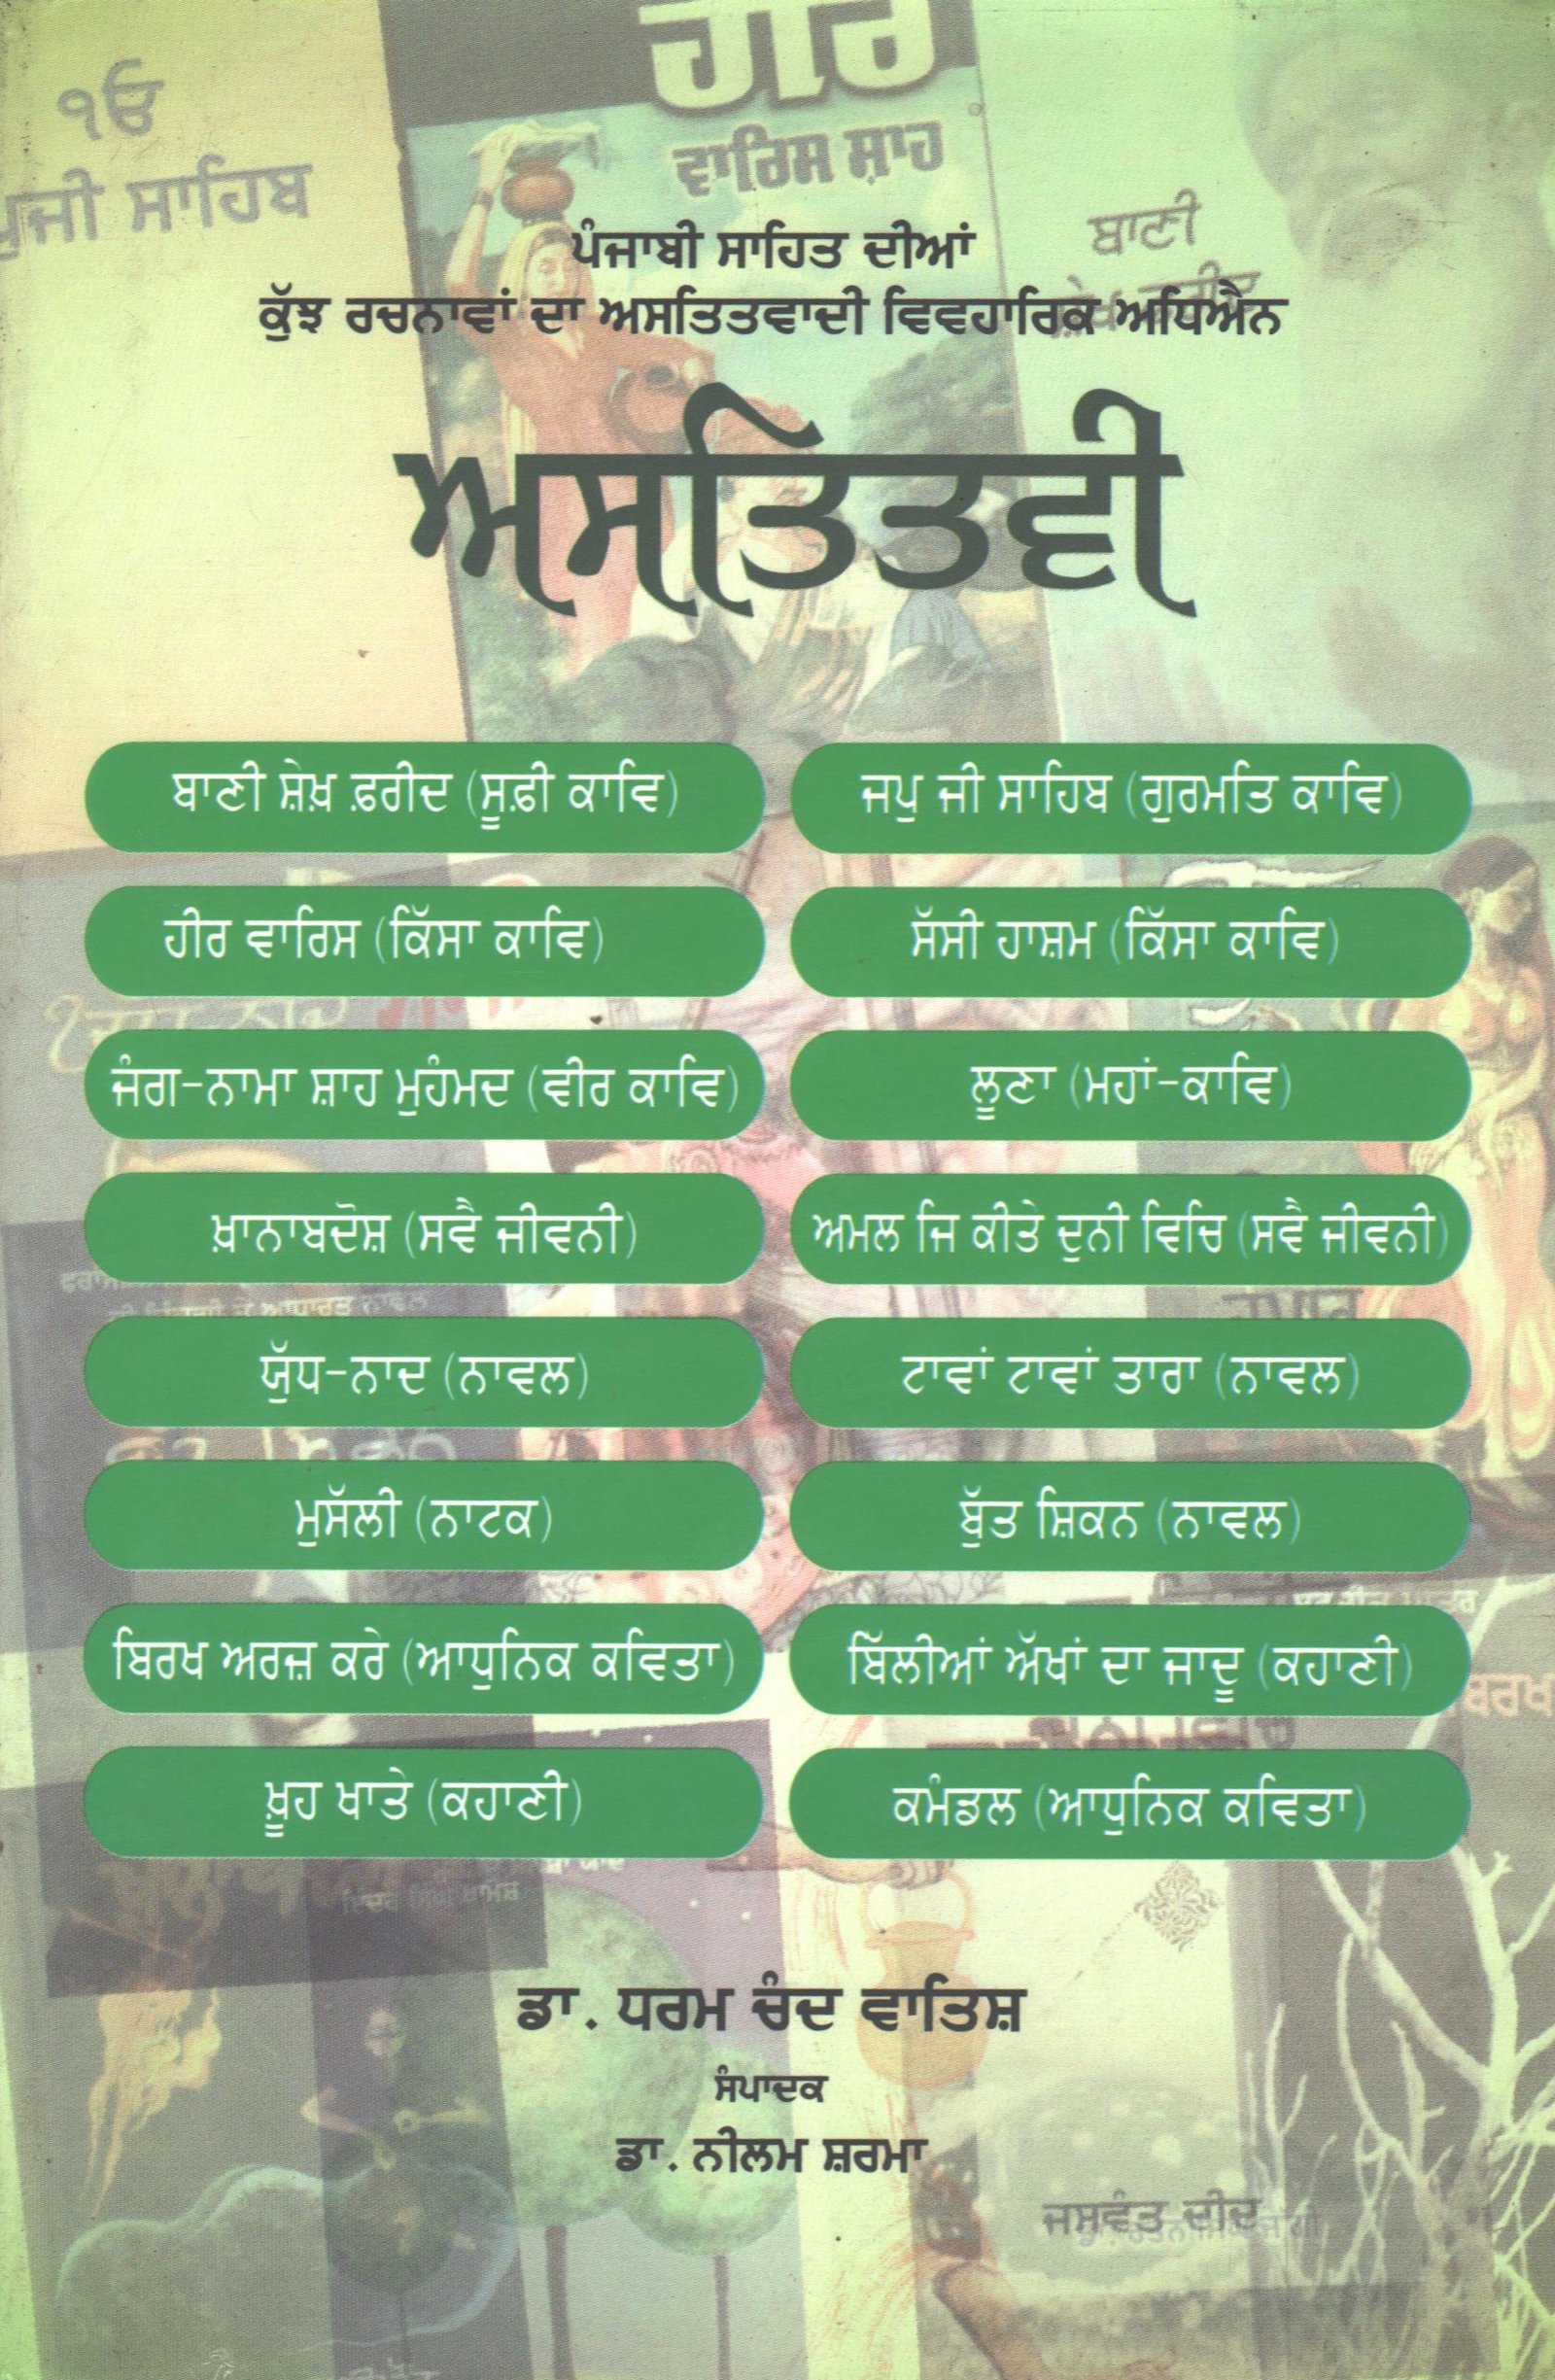 ੧ਓ
ਜੀ ਸਾਹਿਬ
ਹੀਰ
ਵਾਰਿਸ ਸ਼ਾਹ
ਬਾਣੀ
ਪੰਜਾਬੀ ਸਾਹਿਤ ਦੀਆਂ
ਕੁੱਝ ਰਚਨਾਵਾਂ ਦਾ ਅਸਤਿਤਵਾਦੀ ਵਿਵਹਾਰਿਕ ਅਧਿਐਨ
ਅਸਤਿਤਵੀ
ਬਾਣੀ ਸ਼ੇਖ਼ ਫ਼ਰੀਦ (ਸੂਫ਼ੀ ਕਾਵਿ)
ਜਪੁ ਜੀ ਸਾਹਿਬ (ਗੁਰਮਤਿ ਕਾਵਿ)
ਹੀਰ ਵਾਰਿਸ (ਕਿੱਸਾ ਕਾਵਿ)
ਸੱਸੀ ਹਾਸ਼ਮ (ਕਿੱਸਾ ਕਾਵਿ)
ਜੰਗ-ਨਾਮਾ ਸ਼ਾਹ ਮੁਹੰਮਦ (ਵੀਰ ਕਾਵਿ)
ਲੂਣਾ (ਮਹਾਂ-ਕਾਵਿ)
ਖ਼ਾਨਾਬਦੋਸ਼ (ਸਵੈ ਜੀਵਨੀ)
ਅਮਲ ਜਿ ਕੀਤੇ ਦੁਨੀ ਵਿਚਿ (ਸਵੈ ਜੀਵਨੀ)
ਯੁੱਧ-ਨਾਦ (ਨਾਵਲ)
ਟਾਵਾਂ ਟਾਵਾਂ ਤਾਰਾ (ਨਾਵਲ)
ਮੁਸੱਲੀ (ਨਾਟਕ)
ਬੁੱਤ ਸ਼ਿਕਨ (ਨਾਵਲ)
ਬਿਰਖ ਅਰਜ਼ ਕਰੇ (ਆਧੁਨਿਕ ਕਵਿਤਾ)
ਬਿੱਲੀਆਂ ਅੱਖਾਂ ਦਾ ਜਾਦੂ (ਕਹਾਣੀ)
ਖ਼ੂਹ ਖਾਤੇ (ਕਹਾਣੀ)
ਕਮੰਡਲ (ਆਧੁਨਿਕ ਕਵਿਤਾ)
ਡਾ. ਧਰਮ ਚੰਦ ਵਾਤਿਸ਼
ਸੰਪਾਦਕ
ਡਾ. ਨੀਲਮ ਸ਼ਰਮਾ
ਜਸਵੰਤ ਦੀਦ